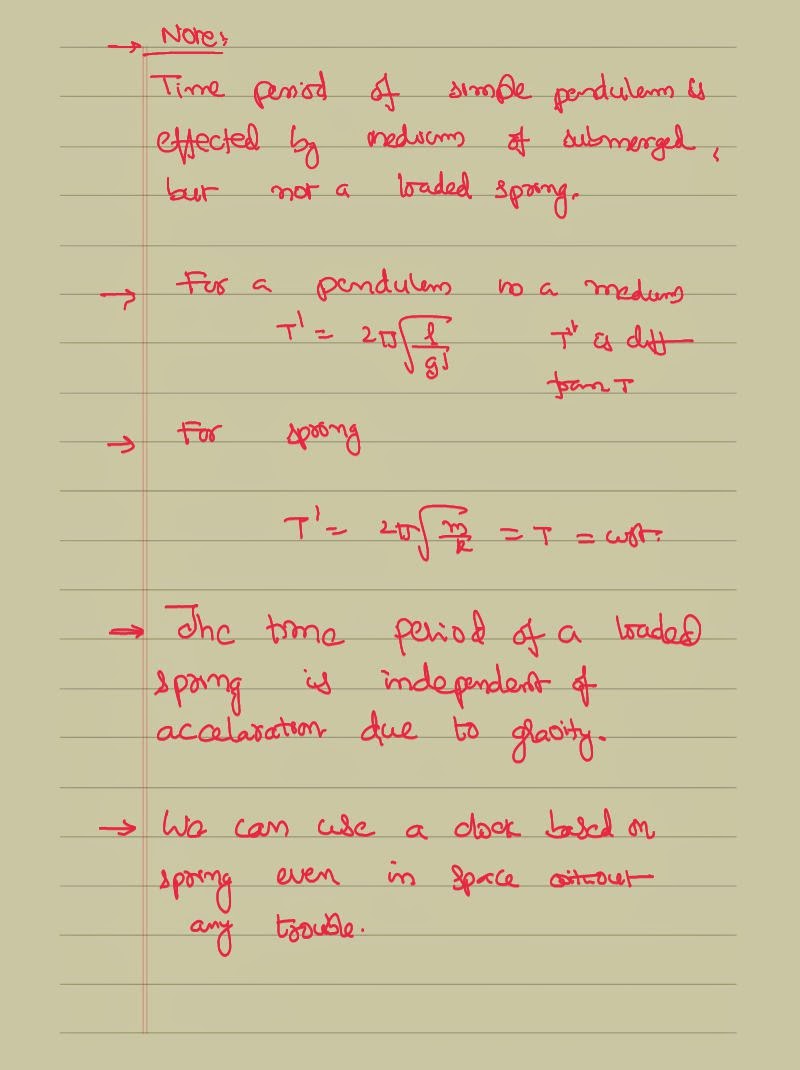 → Note:
Time period of simple pendulem is
effected by medium of submerged,
but not a loaded spring.
→ For a pendulem in a medium
T' = 2π√(l/g') T' is diff
from T
→ For spring
T' = 2π√(m/k) = T = const.
→ The time period of a loaded
spring is independent of
accelaration due to gravity.
→ We can use a clock based on
spring even in space without
any trouble.